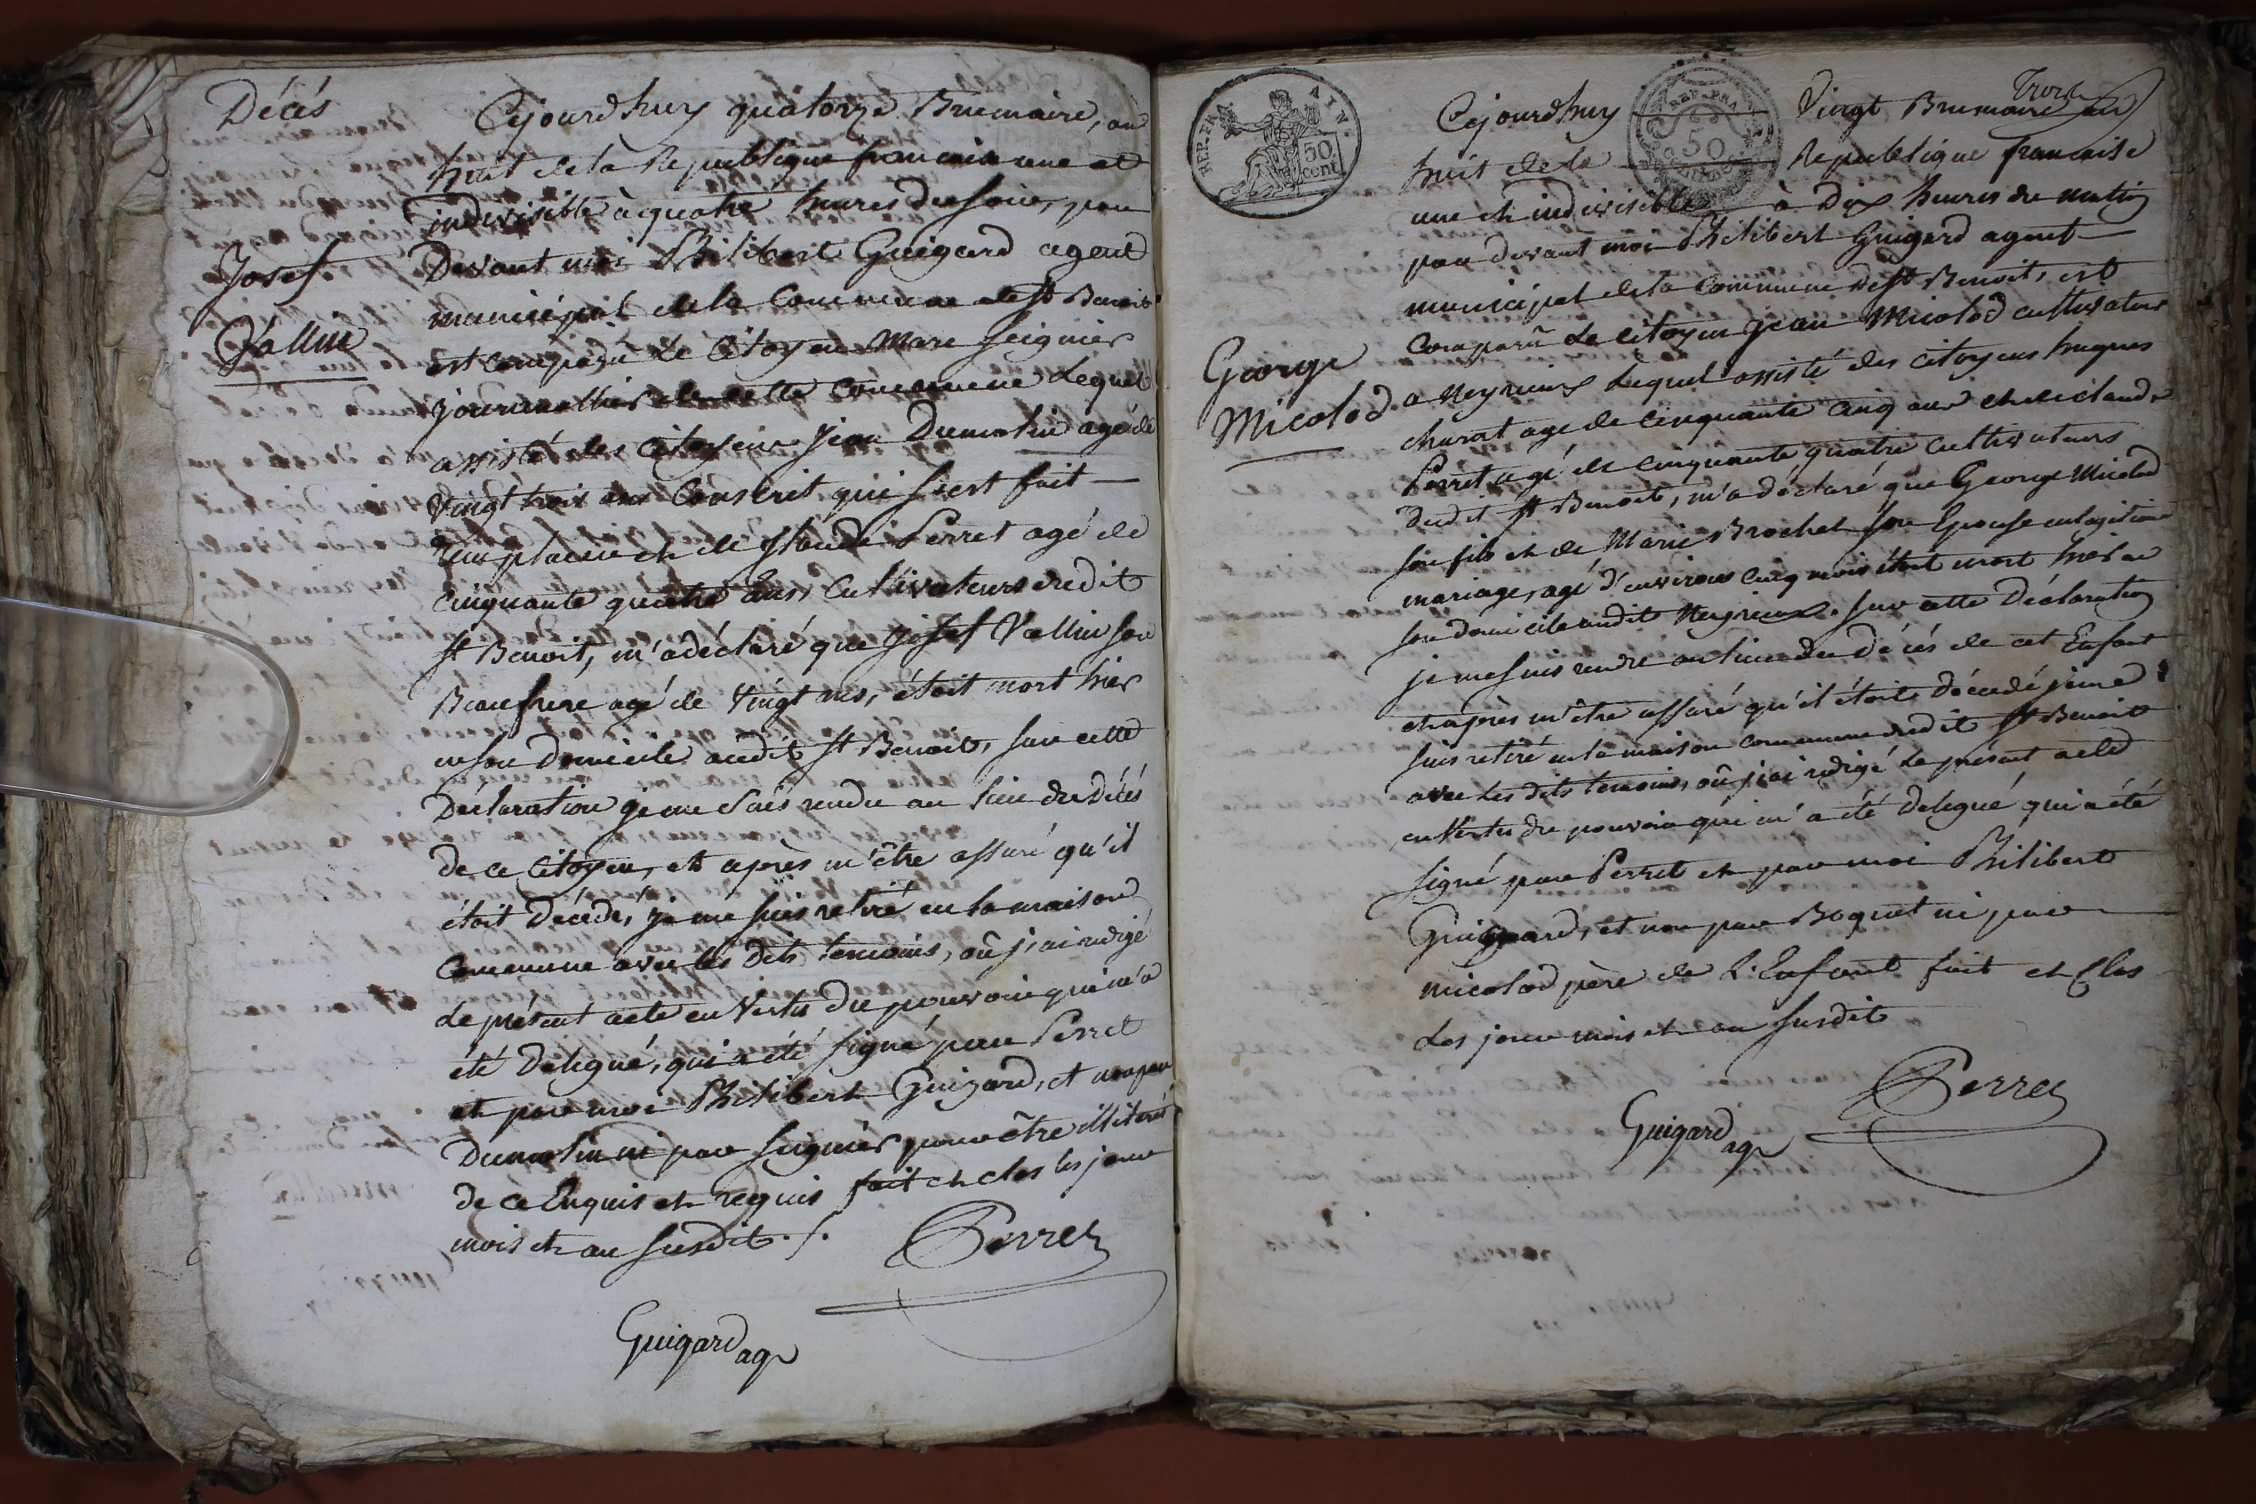 Décés
Josef
Vallin
Cejourdhuy quatorze Brumaire, an
huit de la Republique francaise une et
indivisible à quatre heures du soir, par
Devant moi Philibert Guigard agent
municipal de la Commune de St Benoit
est comparu Le Citoyen Marc Seignier
journallier de cette Commune Lequel
assisté des Citoyens Jean Dumolin agé de
Vingt trois ans Conscrit qui s'est fait
remplacer et de Claude Perret agé de
Cinquante quatre ans, Cultivateurs dudit
St Benoit, m'a déclaré que Josef Vallin son
Beaufrere agé de Vingt ans, étoit mort hier
en son Domicile audit St Benoit, sur cette
Déclaration je me suis rendu au lieu du Décés
de ce Citoyen, et après m'être assuré qu'il
étoit Décédé, je me suis retiré en la maison
Commune avec les dits temoins, où j'ai redigé
Le présent acte en Vertu du pouvoir qui m'a
été Delegué, qui a été signé par Perret
et par moi Philibert Guigard, et non par
Dumolin ni par Seignier pour être illiterés
de ce Enquis et requis fait et clos les jour
mois et an susdit ./.
Perret
Guigard ag
REP. FRA. AIN.
50
cent
REP. FRA
50
Trois
George
Micolod
Cejourdhuy Vingt Brumaire an
huit de la Republique francaise
une et indivisible à Dix heures du matin
par devant moi Philibert Guigard agent
municipal de la Commune de St Benoit, est
Comparu Le Citoyen Jean Micolod cultivateur
a Neyrieux Lequel assisté des Citoyens hugues
agé de cinquante cinq ans et de Claude
Perret agé de cinquante quatre cultivateurs
dudit St Benoit, m'a déclaré que George Micolod
son fils et de Marie Brochet son Epouse en legitime
mariage, agé d'environs cinq mois étoit mort hier en
son domicile audit Neyrieux. sur cette Déclaration
je me suis rendu au lieu du Décés de cet Enfant
et après m'être assuré qu'il étoit décedé je me
suis retiré en la maison commune dudit St Benoit
avec les dits temoins, où j'ai redigé Le présent acte
en Vertu du pouvoir qui m'a été Delegué qui a été
signé par Perret et par moi Philibert
Guigard, et non par Boquet ni par
micolod père de L'Enfant fait et Clos
Les jour mois et an susdit
Perret
Guigard ag